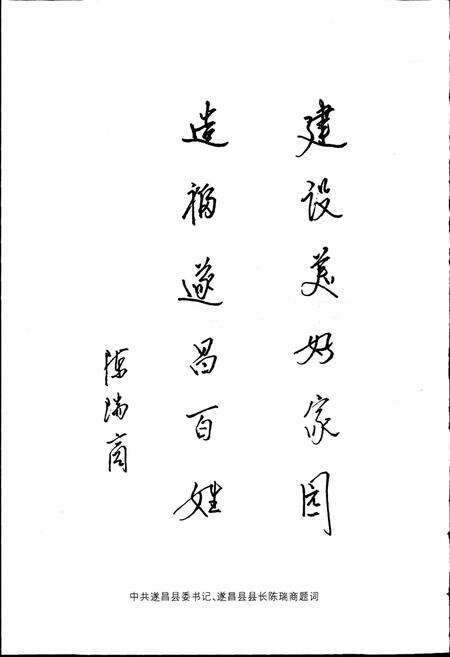 建设美好家园
造福遂昌百姓
陈瑞商
中共遂昌县委书记、遂昌县县长陈瑞商题词